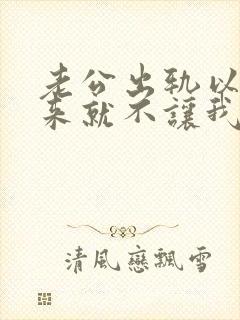 老公出轨以
来就不讓我
清風戀飄雪